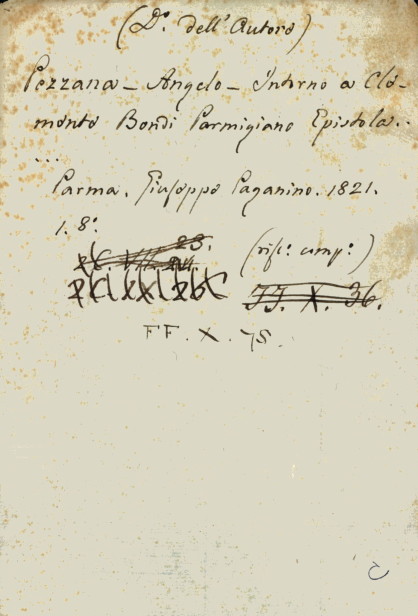 (D.° dell'Autore)
Pezzana - Angelo - Intorno a Cle-
mente Bondi Parmigiano Epistola..
...
Parma. Giuseppe Paganino. 1821.
1. 8.°
23.
(risc.° camp.°)
JJ. X. 36.
FF. X. 75.